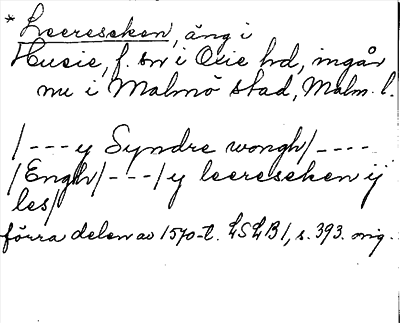 * Leereseken, äng i
Husie, f. sn i Oxie hd, ingår
nu i Malmö stad, Malm. l.
/---y Syndre wongh/----
/Engh/---/y leereseken ij
les/
förra delen av 1570-t. LSLB1, s. 393. mg.